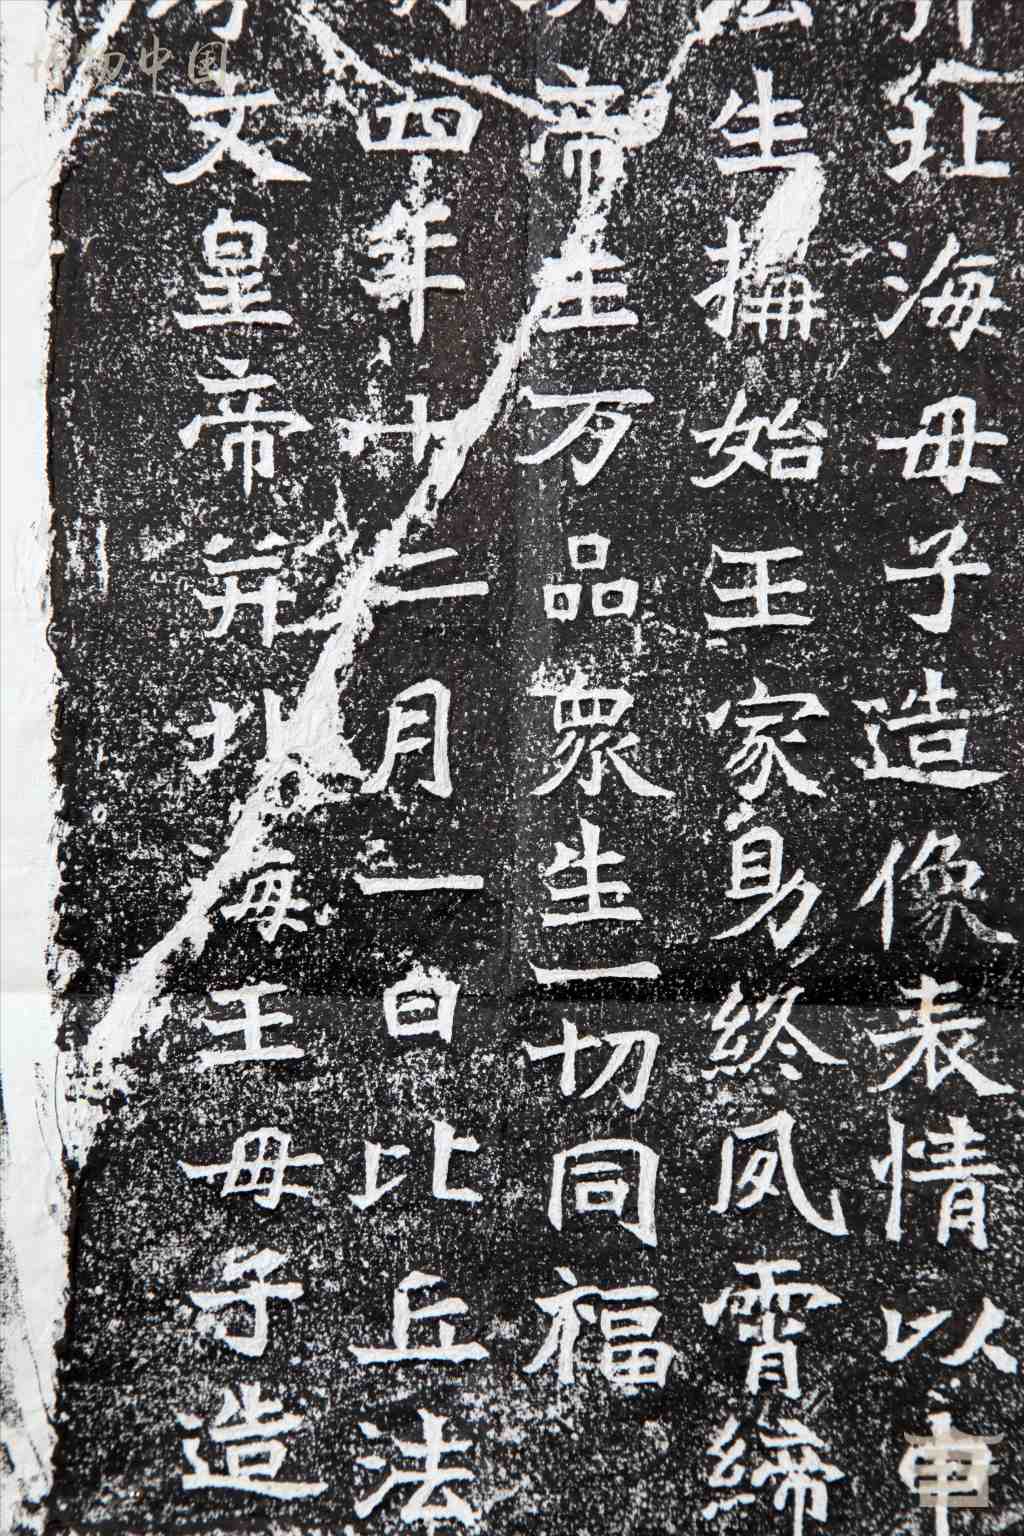 北海母子造像表情以申
生攝始王家身終夙霄締
帝主万品眾生一切同福
四年十二月一日比丘法
文皇帝并北海王母子造
博物中国